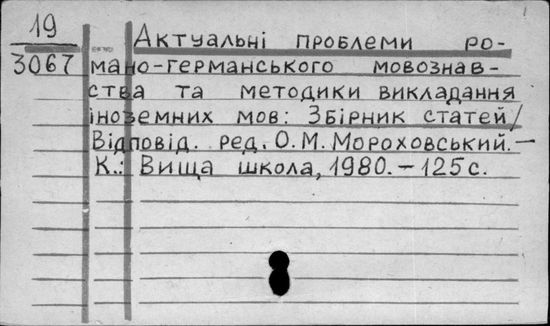 19
3067
Актуальні проблеми ро-
мано-германського мовознав-
ства та методики викладання
іноземних мов: Збірник статей/
Відповід. ред. О.М. Мороховський.—
К.: Вища школа, 1980.— 125 с.